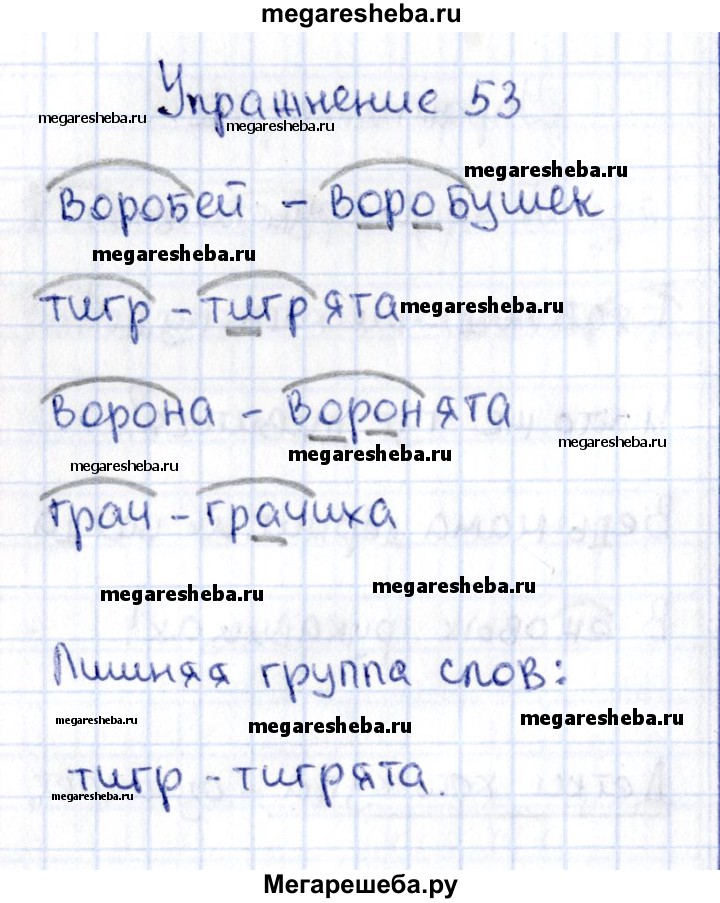 megaresheba.ru
Упражнение 53
megaresheba.ru
megaresheba.ru
megaresheba.ru
воробей – воробушек
megaresheba.ru
тигр – тигрята
megaresheba.ru
ворона – воронята
megaresheba.ru
megaresheba.ru
megaresheba.ru
грач – грачиха
megaresheba.ru
megaresheba.ru
Лишняя группа слов:
megaresheba.ru
megaresheba.ru
megaresheba.ru
тигр – тигрята.
megaresheba.ru
Мегарешеба.ру